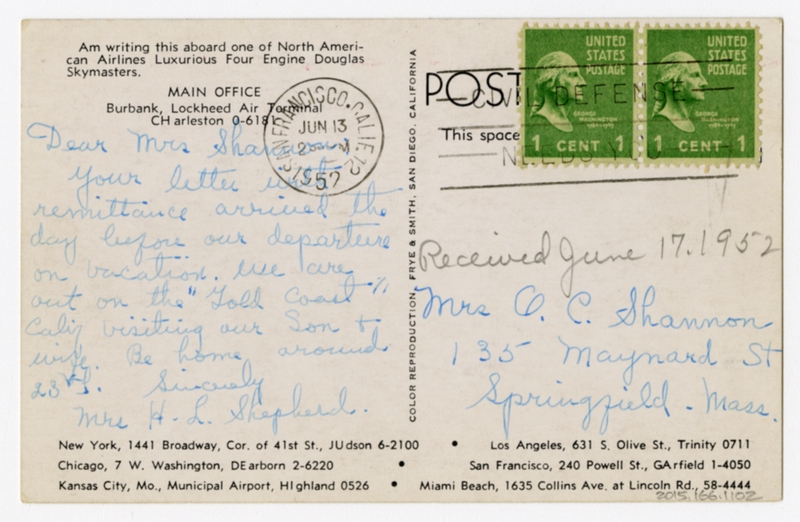 Am writing this aboard one of North Ameri-
can Airlines Luxurious Four Engine Douglas
Skymasters.
MAIN OFFICE
Burbank, Lockheed Air Terminal
CHarleston 0-6181
Dear Mrs Shannon,
Your letter with
remittance arrived the
day before our departure
on vacation. We are
out on the "Gold Coast"
Calif visiting our Son &
wife. Be home around
23rd. Sincerely
Mrs H. L. Shepherd.
SAN FRANCISCO, CALIF. 12
JUN 13
1952
COLOR REPRODUCTION, FRYE & SMITH, SAN DIEGO, CALIFORNIA
POST
This space
CIVIL DEFENSE
NEEDS
UNITED STATES POSTAGE
GEORGE WASHINGTON
1 CENT 1
UNITED STATES POSTAGE
GEORGE WASHINGTON
1 CENT 1
Received June 17. 1952
Mrs O. C. Shannon
135 Maynard St
Springfield - Mass.
New York, 1441 Broadway, Cor. of 41st St., JUdson 6-2100 • Los Angeles, 631 S. Olive St., Trinity 0711
Chicago, 7 W. Washington, DEarborn 2-6220 • San Francisco, 240 Powell St., GArfield 1-4050
Kansas City, Mo., Municipal Airport, HIghland 0526 • Miami Beach, 1635 Collins Ave. at Lincoln Rd., 58-4444
2015.166.1102